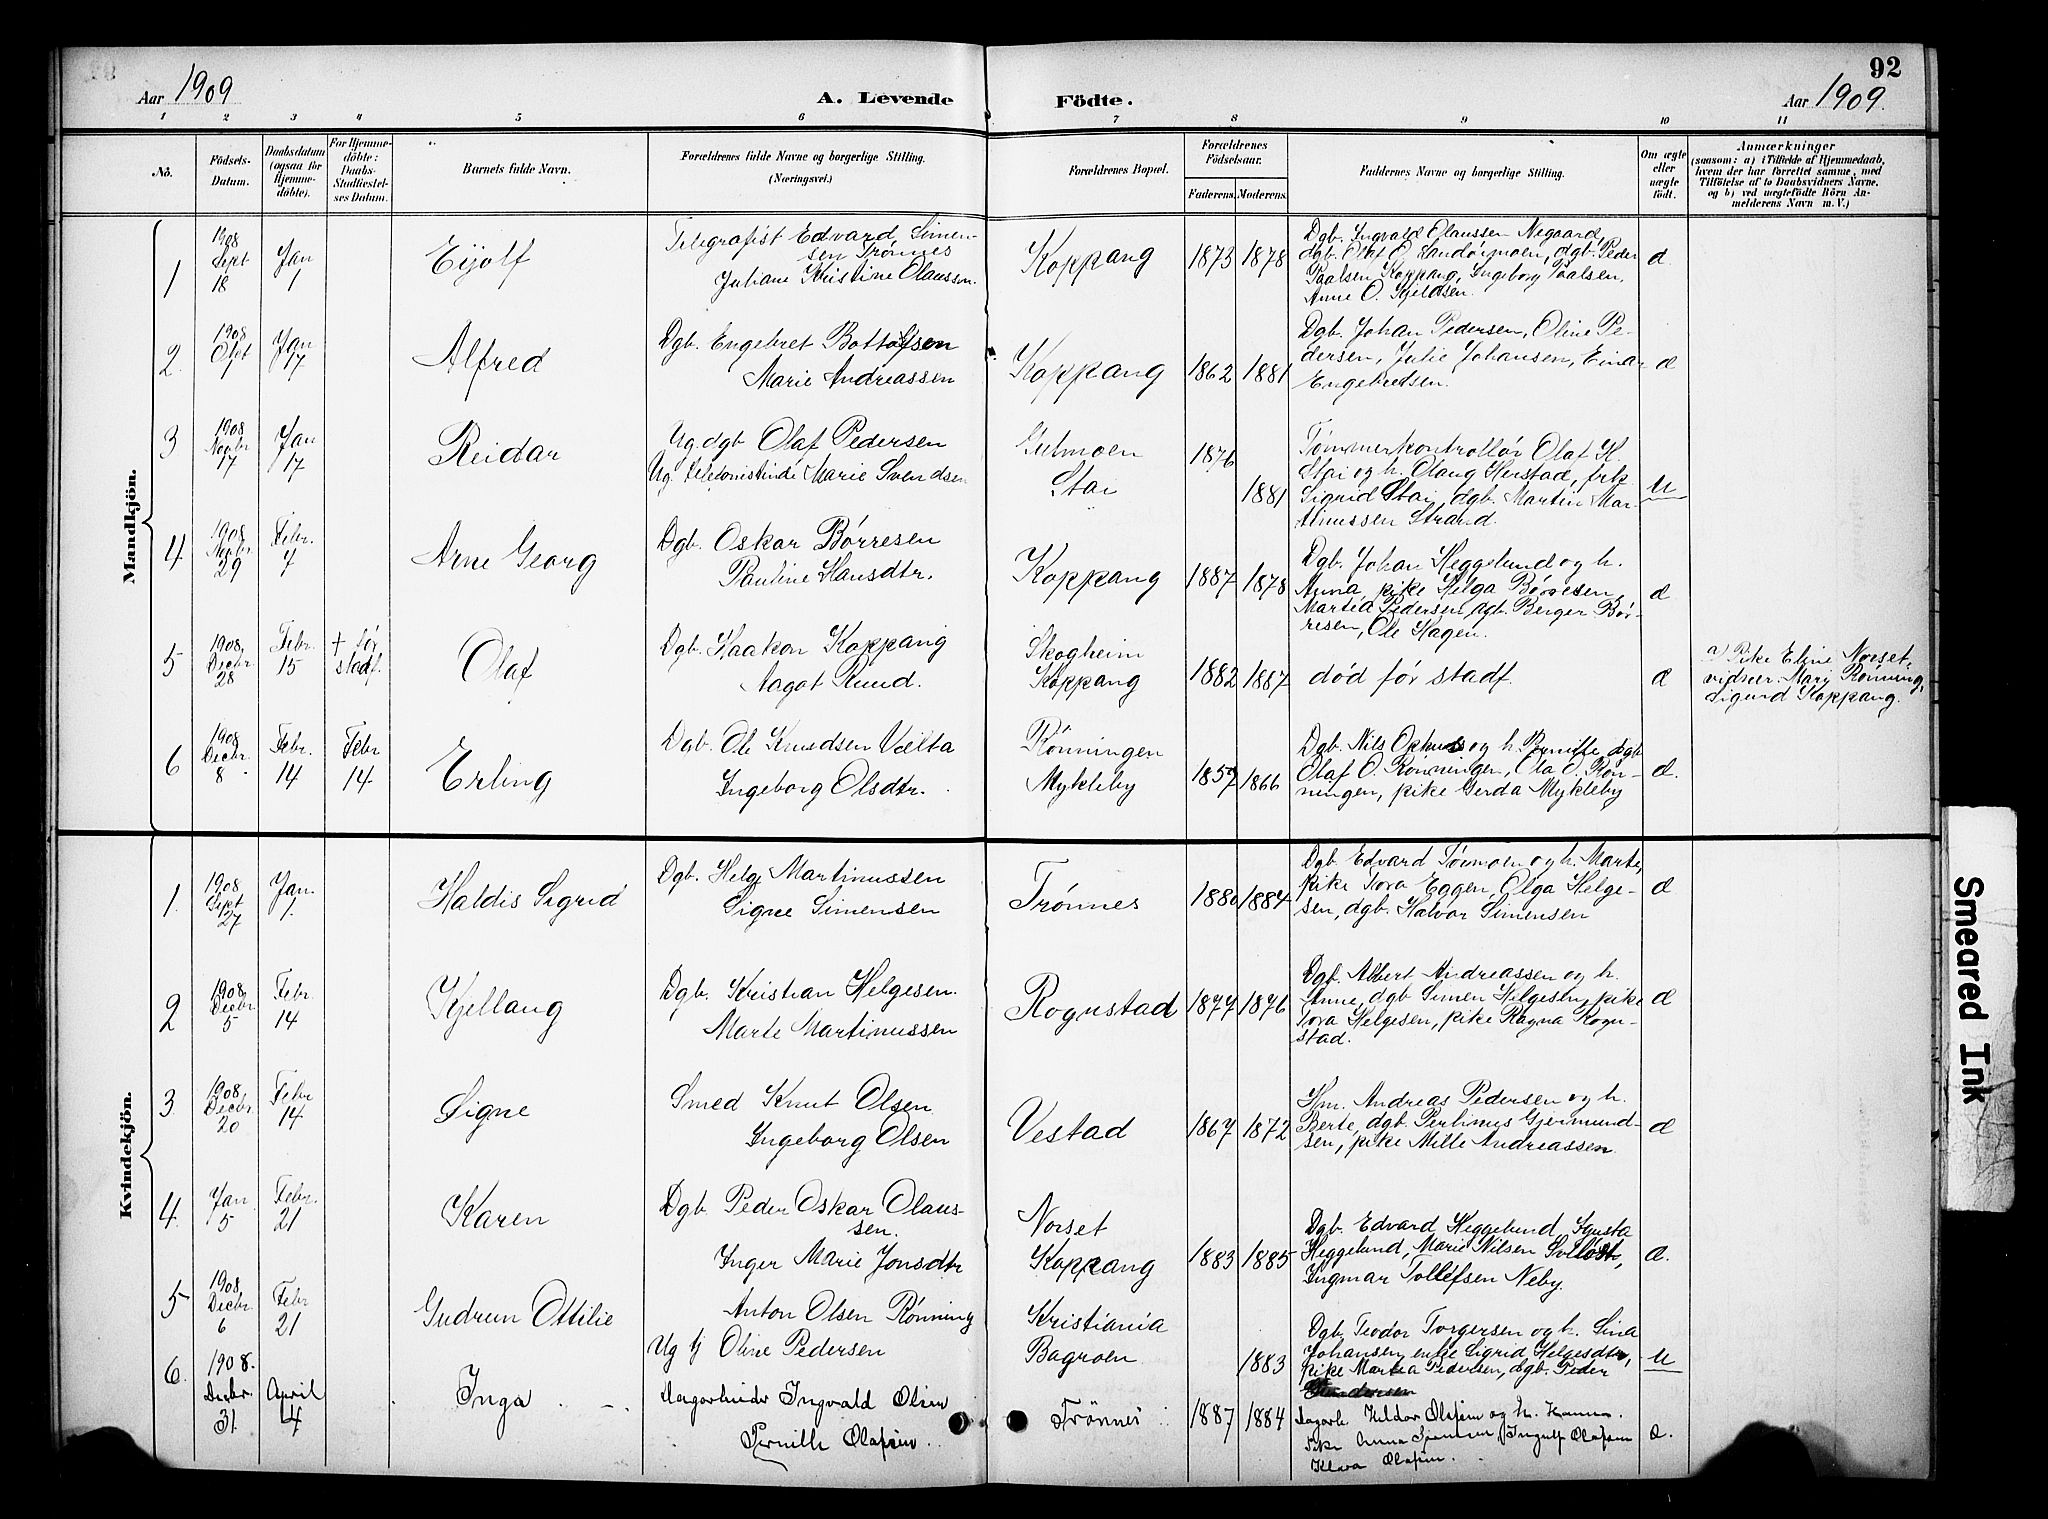 92
Aar 1909
A. Levende Födte.
Aar 1909.
1 2 3 4 5 6 7 8 9 10 11
No.
Födsels-
Datum.
Daabsdatum
(ogsaa for
Hjemme-
döbte).
For Hjemme-
döbte:
Daabs-
Stadfæstel-
ses Datum.
Barnets fulde Navn.
Forældrenes fulde Navne og borgerlige Stilling.
(Næringsvei.)
Forældrenes Bopæl.
Forældrenes
Födselsaar.
Faderens.
Moderens.
Faddernes Navne og borgerlige Stilling.
Om ægte
eller
uægte
født.
Anmærkninger
(saasom: a) i Tilfælde af Hjemmedaab,
hvem der har forrettet samme, med
Tilføielse af to Daabsvidners Navne,
og b) ved uægtefödte Börn An-
melderens Navn m. V.)
Mandkjön.
1
1908
Sept
18
Jan
1
Eijolf
Telegrafist Edvard Simen-
sen Trønnes
Juliane Kristine Olaussen.
Koppang
1873
1878
Dgb. Ingvald Olaussen Nygaard,
dgb. Olaf O. Sandörmoen, dgb. Peder
Paalsen Koppang, Ingeborg Paalsen,
Anne O. Kjeldsen.
æ.
2.
1908
Okt
1
Jan
17
Alfred
Dgb. Engebret Bottolfsen
Marie Andreassen
Koppang
1862
1881
Dgb. Johan Pedersen, Oline Pe-
dersen, Julie Johansen, Einar
Engebretsen.
æ
3
1908
Novbr
17
Jan
17
Reidar
Ug. dgb Olaf Pedersen
Ug. telefonistinde Marie Svendsen
Stai
1876
1881
Tømmerkontrollør Olaf H.
Stai og h. Olaug Herstad, frk
Sigrid Stai, dgb. Martin Mar-
tinussen Strand.
U
4
1908
Novbr.
29
Febr.
7
Arne Georg
Dgb. Oskar Börresen
Pauline Hansdtr.
Koppang
1887
1878
Dgb. Johan Heggelund og h.
Anna, pike Helga Börresen,
Martea Pedersen, dgb. Berger Bör-
resen, Ole Hagen.
æ
5
1908
Decbr.
28
Febr.
15
+ før
stadf.
Olaf
Dgb. Haakon Koppang
Aagot Ruud.
Skogheim
Koppang
1882
1887
død før stadf.
æ
a) Pike Eline Norset,
vidner: Mary Rønning,
Sigurd Koppang.
6
1908
Decbr.
8
Febr.
14
Febr
14.
Erling
Dgb. Ole Knudsen Vælta
Ingeborg Olsdtr.
Rønningen
Mykleby
1857
1866
Dgb. Nils og h. Pernille, dgb
Olaf O. Rønningen, Ola O. Røn-
ningen, pike Gerda Mykleby
æ.
Kvindekjön.
1.
1908
Sept
27
Jan.
1.
Haldis Sigrid
Dgb. Helge Martinussen
Signe Simensen
Trønnes
1880
1884
Dgb. Edvard Törmoen og h. Marte,
pike Tora Eggen, Olga Helge-
sen, dgb. Halvor Simensen
æ
2
1908
Decbr.
5
Febr.
14
Kjellaug
Dgb. Kristian Helgesen.
Marte Martinussen
Rognstad
1877
1876
Dgb. Albert Andreassen og h.
Anne, dgb Simen Helgesen, pike
Tora Helgesen, pike Ragna Rogn-
stad.
æ
3
1908.
Decbr.
20
Febr
14
Signe
Smed Knut Olsen
Ingeborg Olsen
Vestad
1867
1872
Hm. Andreas Pedersen og h.
Berte, dgb. Perlinus Gjermund-
sen, pike Mille Andreassen.
æ
4.
Jan.
5
Febr.
21
Karen
Dgb Peder Oskar Olaus-
sen.
Inger Marie Jonsdtr
Norset
Koppang
1883
1885
Dgb. Edvard Heggelund, Agusta
Heggelund, Marie Nilsen,
Ingmar Tollefsen Neby.
æ.
5
1908
Decbr.
6
Febr
21
Gudrun Ottilie
Anton Olsen Rønning
Ug tj Oline Pedersen
Kristiania
Bagroen
1883
Dgb. Teodor Torgersen og h. Lina
Johansen, enke Sigrid Helgesdtr,
pike Martea Pedersen, dgb. Peder
U
6.
1908.
Decbr.
31.
April
4
Inga
Dagarbeider Ingvald Olsen
Pernille Olafsen
Trønnes
1887
1884
Dagarb. Haldor Olafsen og h. Hanna.
Pike Anna Ingulf Olafsen
Klara Olafsen.
æ.
Smeared Ink